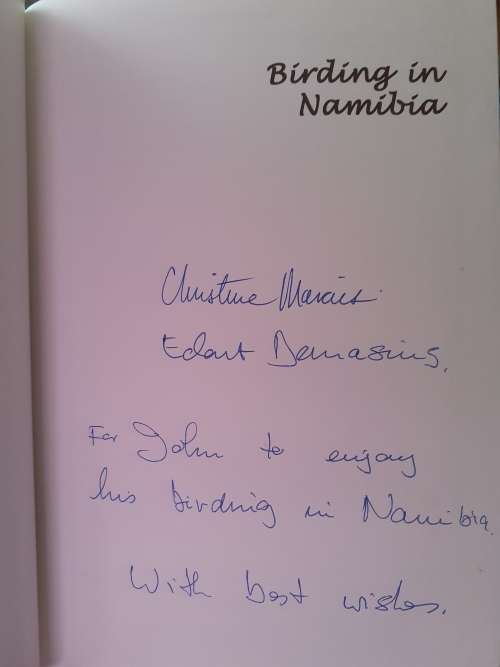 Birding in
Namibia
Christine Marais.
Eckart Demasius.
For John to enjoy
his birding in Namibia.
With best wishes.